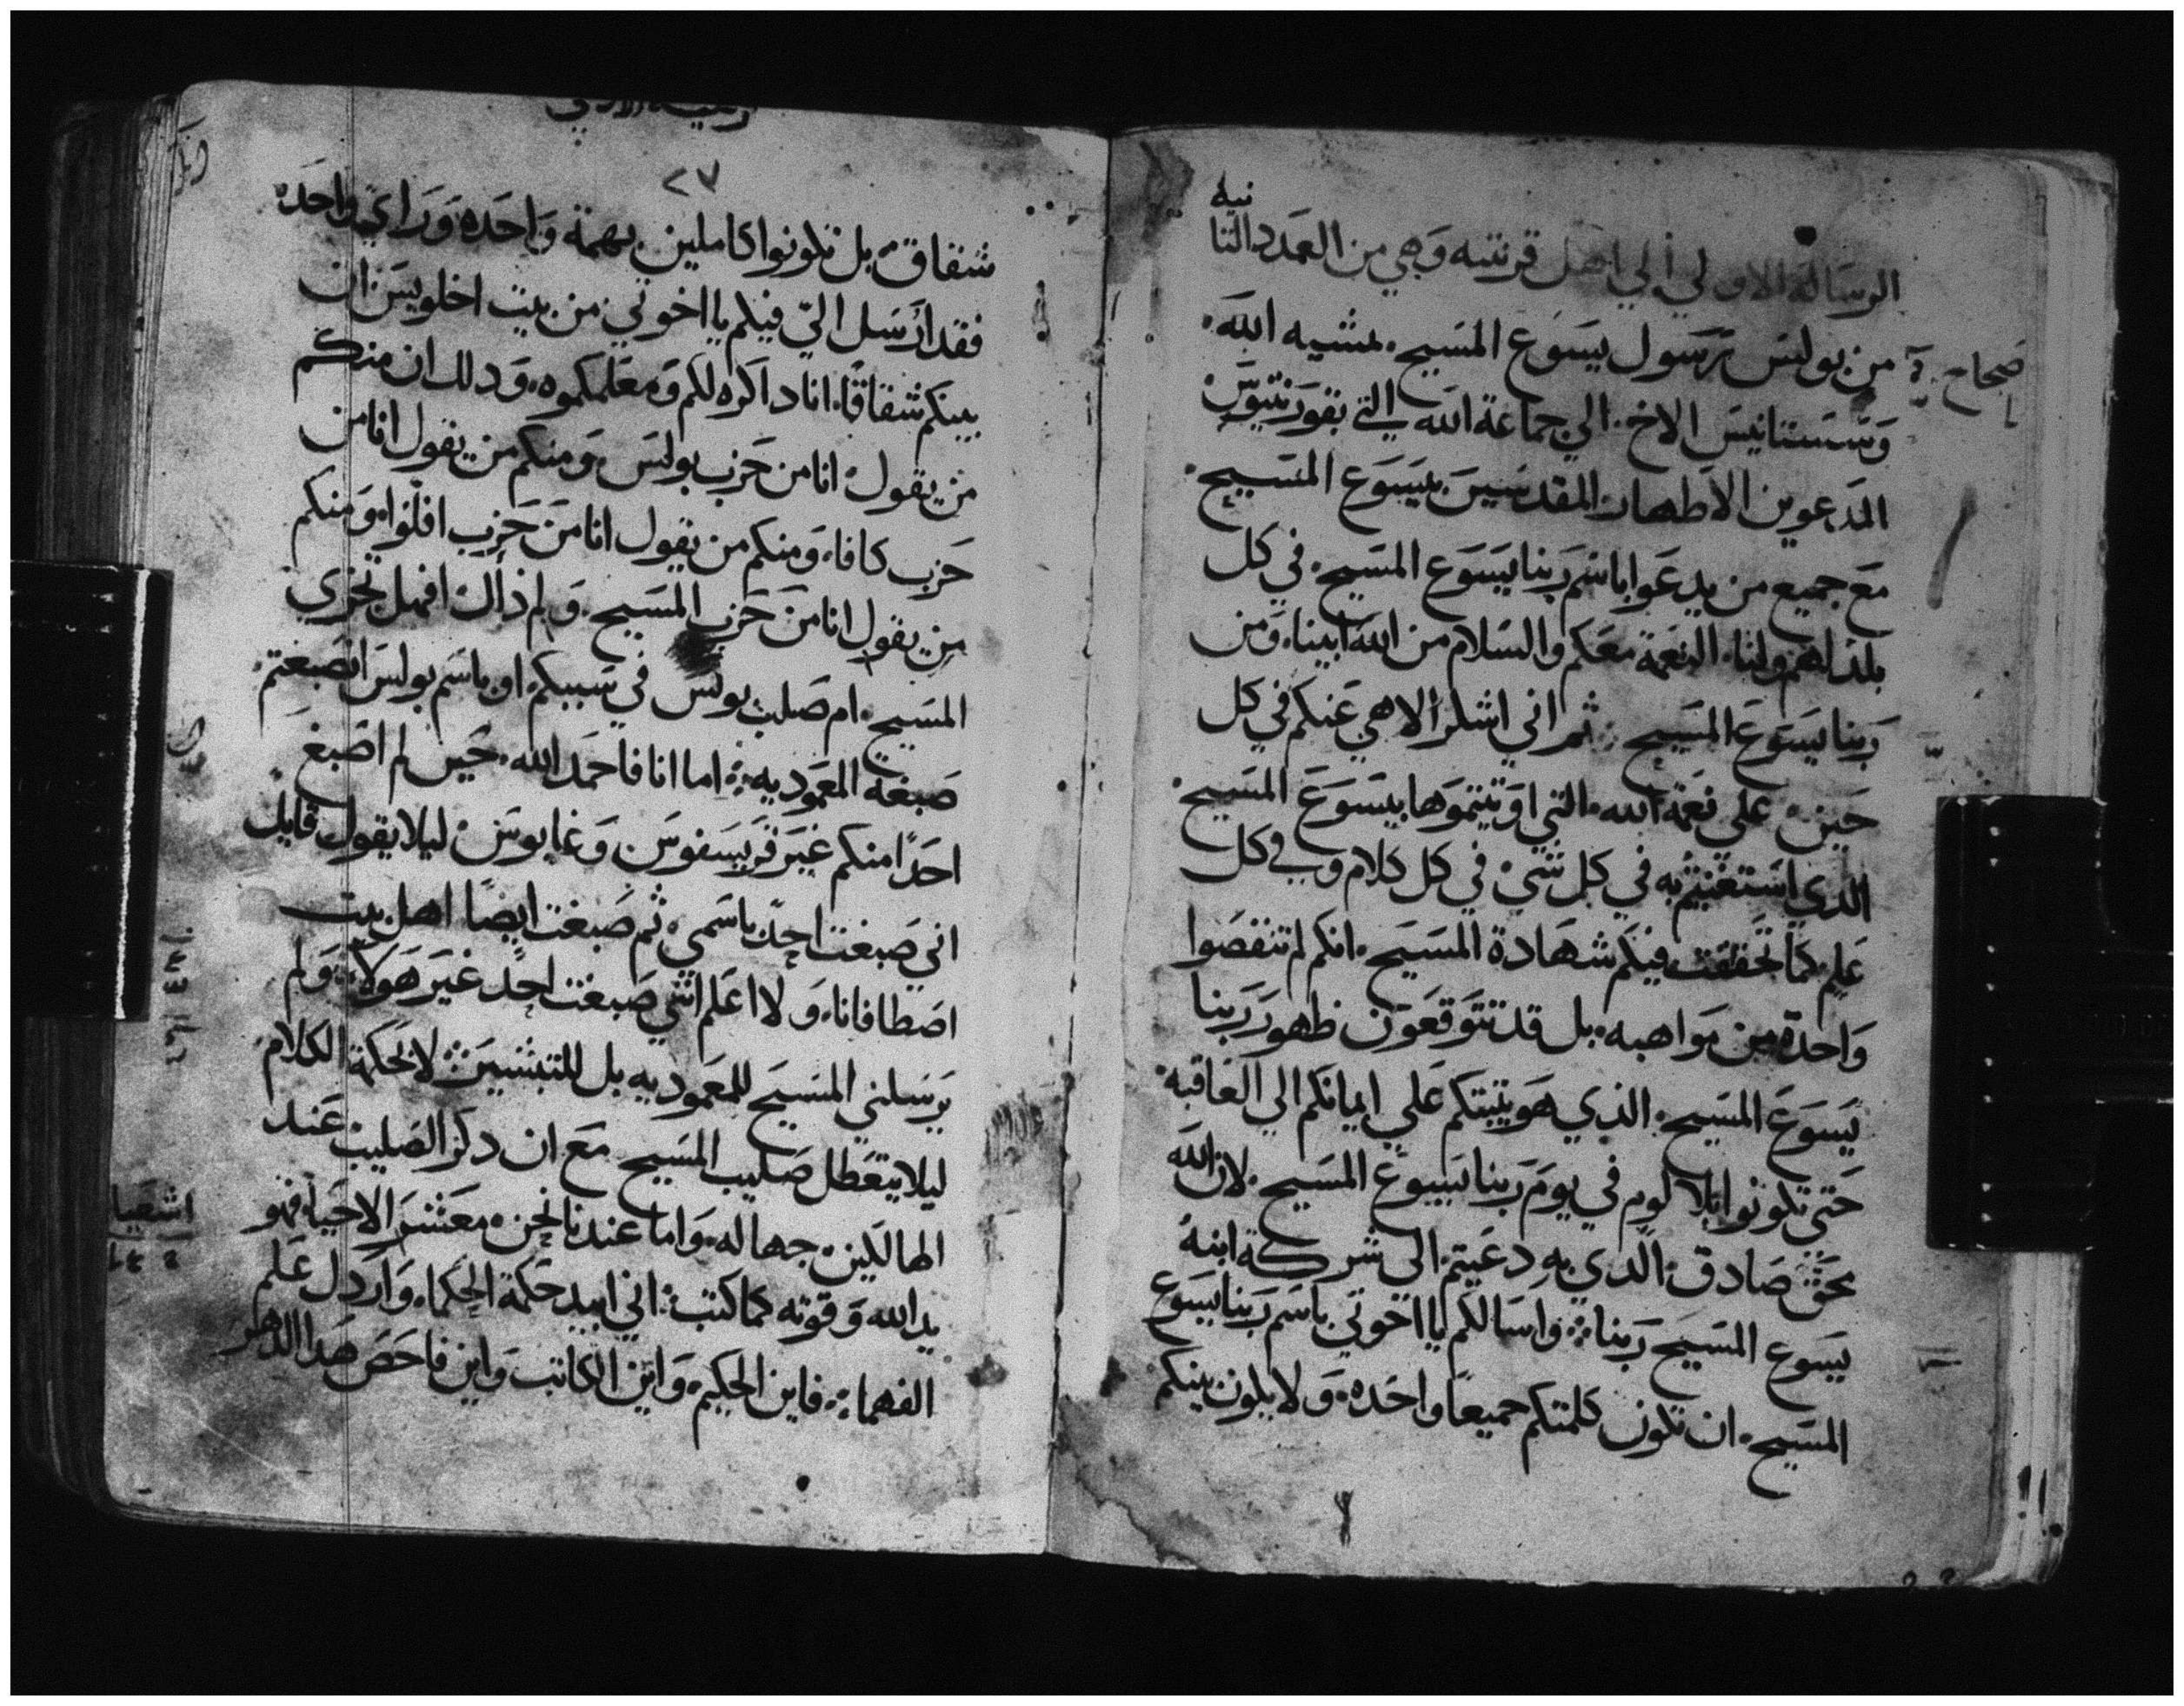 الرساله الاولي الي اهل قرنتيه وهي من العدد الثا
نيه
صحاح
من بولس رسول يسوع المسيح. بمشيه الله.
وسستانيس الاخ. الي جماعة الله التي بقورنتيوس
المدعوين الاطهار المقدسين بيسوع المسيح.
مع جميع من يدعوا باسم ربنا يسوع المسيح. في كل
بلد لهم ولنا. النعمة معكم والسلام من الله ابينا. ومن
ربنا يسوع المسيح ثم اني اشكر الاهي عنكم في كل
حين. على نعمة الله. التي اوتيتموها بيسوع المسيح.
الدي استغنيتم به في كل شي. في كل كلام وفي كل
علم كما تحققت فيكم شهادة المسيح. انكم لم تنقصوا
واحدة من مواهبه. بل قد تتوقعون ظهور ربنا
يسوع المسيح. الذي هو يثبتكم علي ايمانكم الي العاقبه.
حتي تكونوا بلا لوم في يوم ربنا يسوع المسيح. لان الله
بحق صادق. الدي به دعيتم. الى شركة ابنه
يسوع المسيح ربنا. واسالكم يا اخوتي باسم ربنا يسوع
المسيح. ان تكون كلمتكم جميعا واحده. ولا يكون بينكم
٢٧
شقاق. بل تكونوا كاملين بهمة واحده وراي واحده
فقد ارسل الي فيكم يا اخوتي من بيت اخلويس ان
بينكم شقاقا. انا داكره لكم ومعلمكموه. ودلك ان منكم
من يقول انا من حزب بولس ومنكم من يقول انا من
حزب كافا. ومنكم من يقول انا من حزب افلوا. ومنكم
من يقول انا من حزب المسيح. ولم ذلك افهل تجزي
المسيح. ام صلب بولس في سببكم. او باسم بولس انصبغتم.
صبغة المعموديه. اما انا فاحمد الله. حين لم اصبغ
احدا منكم غير قريسفوس وغايوس ليلا يقول قايل
اني صبغت احد باسمي. ثم صبغت ايضا اهل بيت
اصطافانا. ولا اعلم انني صبغت احد غير هولاء. ولم
يرسلني المسيح للمعموديه بل للتبشير لا بحكمة الكلام
ليلا يتعطل صليب المسيح مع ان دكر الصليب عند
الهالكين. جهاله. واما عندنا نحن. معشر الاحيا فهو
اشعيا
يد الله وقوته كما كتب. اني ابيد حكمة الحكما. وارذل علم
الفهما. فاين الحكيم. واين الكاتب واين فاحص هدا الدهر